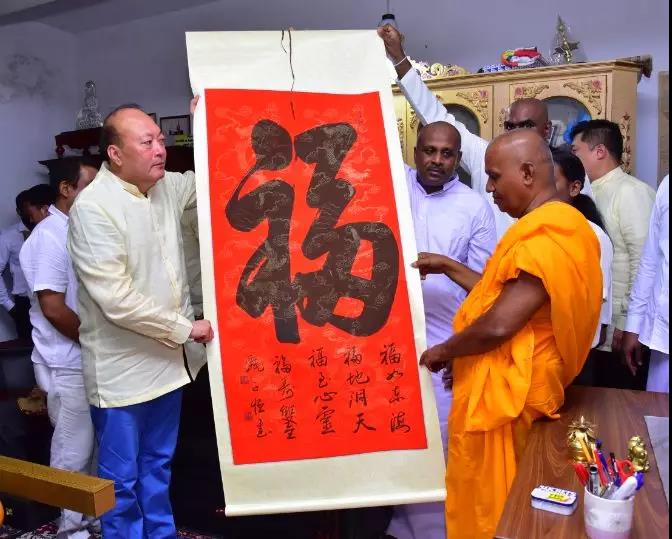 福
福如东海
福地洞天
福至心靈
福寿雙全